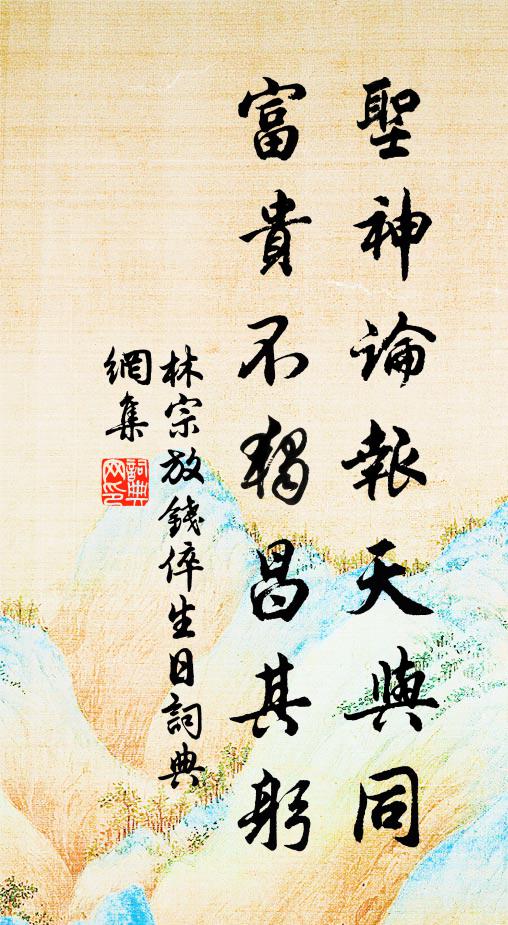 聖神論報天與同
富貴不獨昌其躬
林宗放錢倅生日詞典
網集
詞典網印